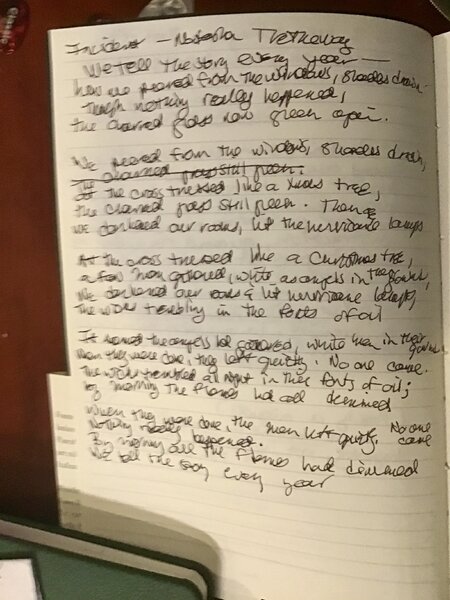 Incident – Natasha Tretheway
We tell the story every year —
how we peered from the windows, shades drawn –
though nothing really happened,
the charred grass now green again.
We peered from the windows, shades drawn,
the charred grass still green.
at the cross trussed like a Xmas tree,
the charred grass still green. Then
we darkened our rooms, lit the hurricane lamps
At the cross trussed like a Christmas tree,
a few men gathered, white as angels in their gowns,
We darkened our rooms & lit hurricane lamps,
the wicks trembling in the fonts of oil
It seemed the angels had gathered, white men in their gowns
When they were done, they left quietly. No one came.
The wicks trembled all night in their fonts of oil;
by morning the flames had all dimmed
When they were done, the men left quietly. No one came
Nothing really happened.
By morning all the flames had dimmed
We tell the story every year